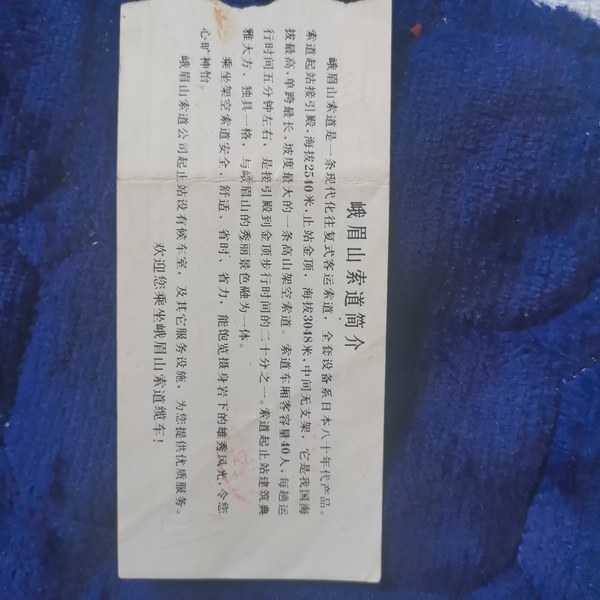 峨眉山索道简介
峨眉山索道是一条现代化往复式客运索道，全套设备系日本八十年代产品。
索道起站接引殿，海拔2540米，止站金顶，海拔3048米，中间无支架，它是我国海
拔最高、单跨最长、坡度最大的一条高山架空索道。索道车厢客容量40人，每趟运
行时间五分钟左右，是接引殿到金顶步行时间的二十分之一。索道起止站建筑典
雅大方、独具一格，与峨眉山的秀丽景色融为一体。
乘坐架空索道安全、舒适、省时、省力，能饱览摄身岩下的雄秀风光，令您
心旷神怡。
峨眉山索道公司起止站设有候车室，及其它服务设施，为您提供优质服务。
欢迎您乘坐峨眉山索道缆车！